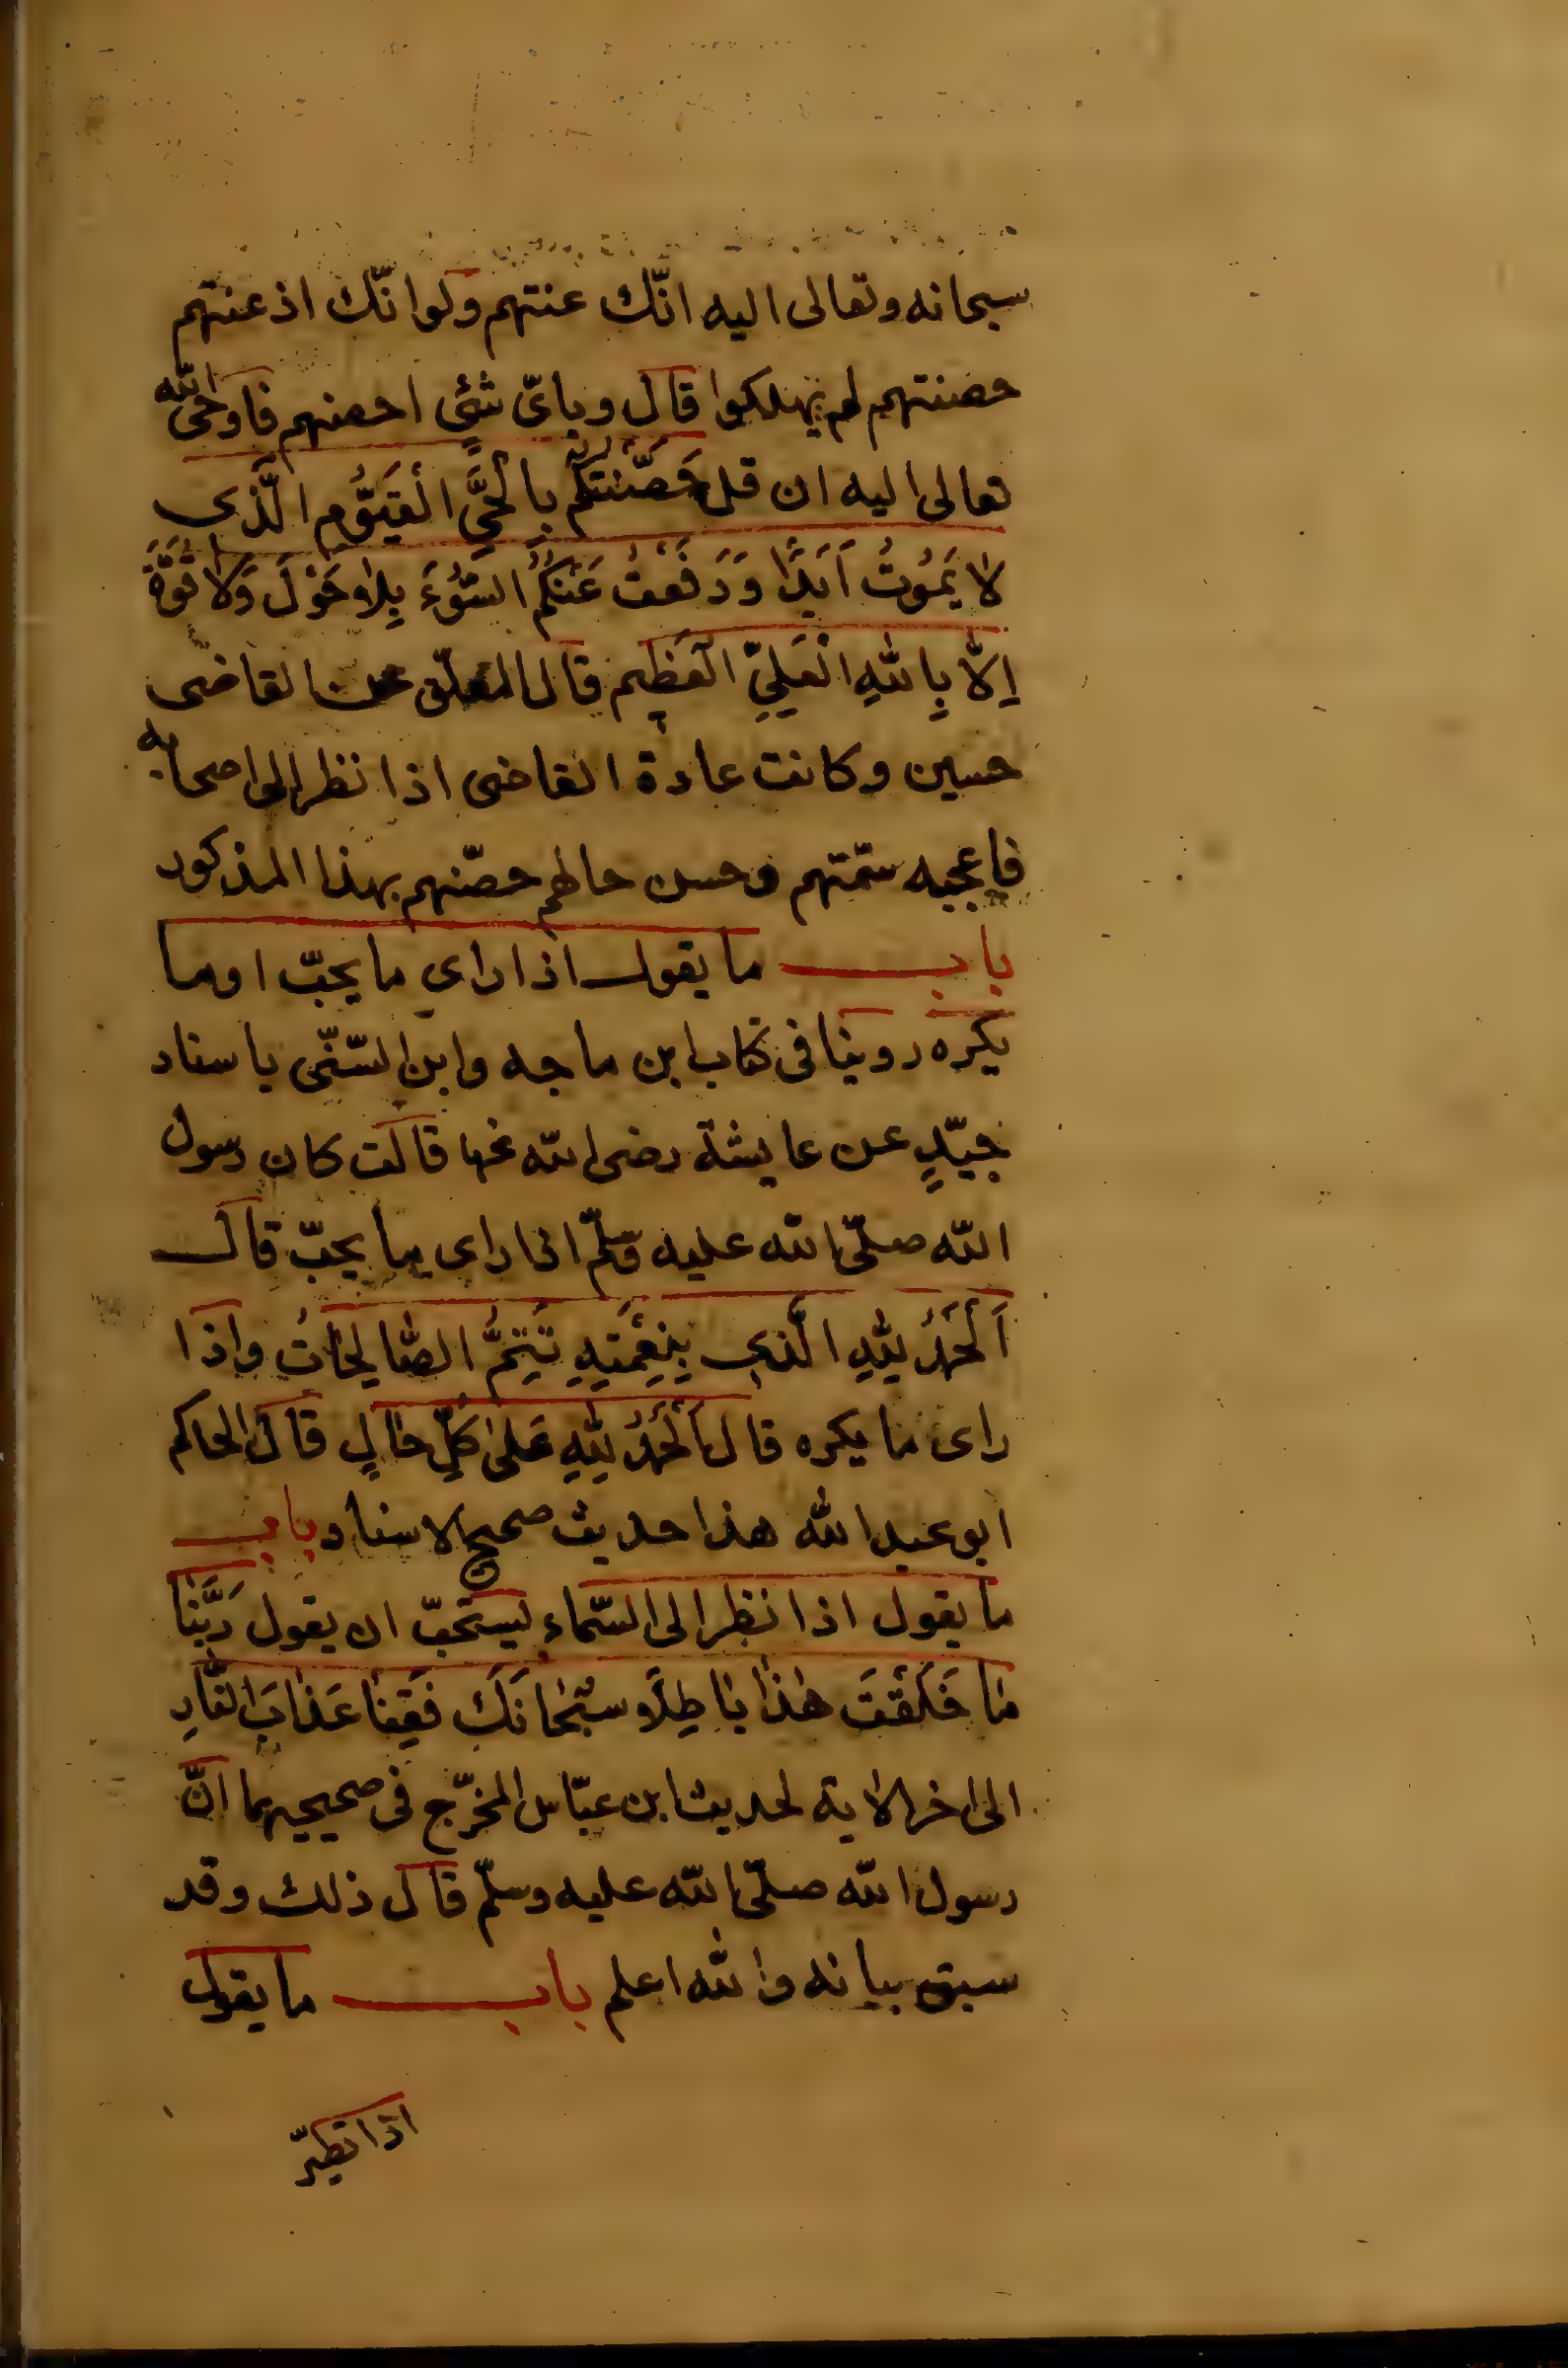 سبحانه وتعالى اليه انّك عنتهم ولوانّك اذ عنتهم
حصنتهم لم يهلكوا قال وباىّ شئٍ احصنهم فاوحى الله
تعالى اليه ان قل حَصَّنْتُكُمْ بِالْحَىِّ الْقَيُّومِ الَّذى
لا يَمُوتُ اَبَدًا وَدَفَعْتُ عَنْكُمُ السُّوُءَ بِلاٰ حَوْلَ وَلاٰ قُوَّةَ
اِلاّٰ بِاللّٰهِ الْعَلِىِّ الْعَظِيمِ قال المعلّق عن القاضى
حسين وكانت عادة القاضى اذا نظر الى اصحابه
فاعجبه سمّتهم وحسن حالهم حصّنهم بهذا المذكور
باب ما يقول اذا راى ما يحبّ او ما
يكره روينا فى كتاب ابن ماجه وابن السّنّى باسناد
جيّدٍ عن عايشة رضى الله عنها قالت كان رسول
الله صلّى الله عليه وسلّم اذا راى ما يحبّ قال
اَلْحَمْدُ لِلّٰهِ الَّذى بِنِعْمَتِهِ تَتِمُّ الصّٰالِحٰاتُ واذا
راى ما يكره قال اَلْحَمْدُ لِلّٰهِ عَلىٰ كُلِّ حٰالٍ قال الحاكم
ابو عبد الله هذا حديث صحيح الاسناد باب
ما يقول اذا نظر الى السّماء يستحبّ ان يقول رَبَّنٰا
مٰا خَلَقْتَ هٰذٰا بٰاطِلًا سُبْحٰانَكَ فَقِنٰا عَذٰابَ النّٰارِ
الى اخر الاية لحديث ابن عبّاس المخرّج فى صحيحيهما انّ
رسول الله صلّى الله عليه وسلّم قال ذلك وقد
سبق بيانه والله اعلم باب ما يقول
اذا تطيّر